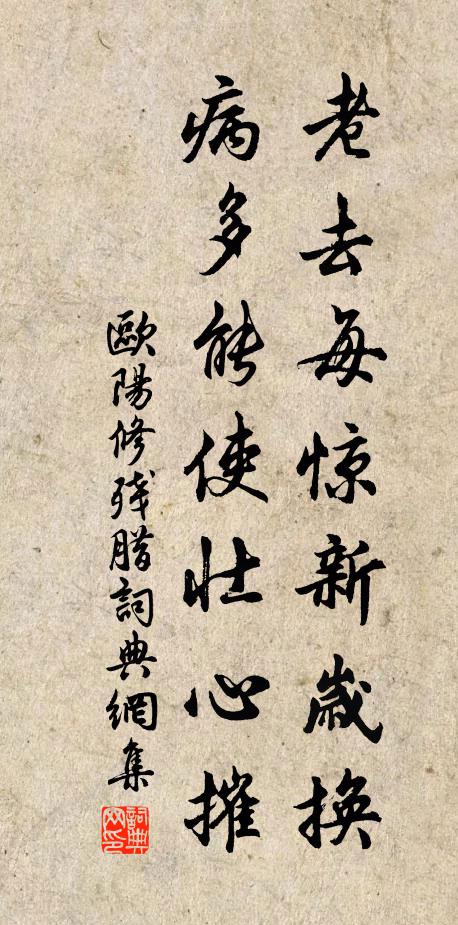 老去每惊新岁换
病多能使壮心摧
歐陽修残腊詞典網集
詞典网印